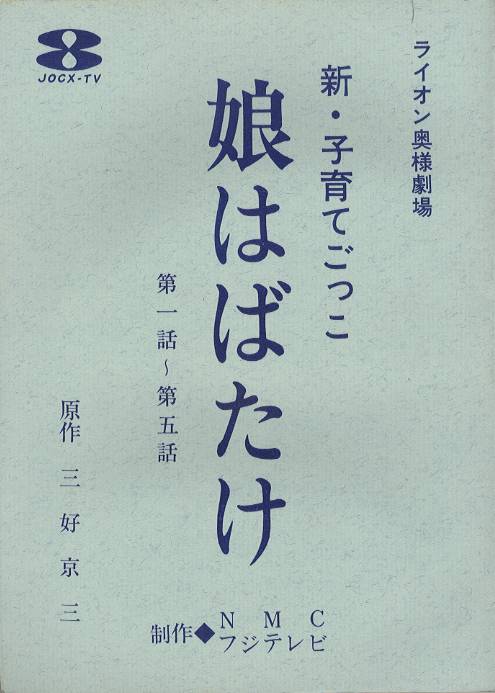 JOCX-TV
ライオン奥様劇場
新・子育てごっこ
娘はばたけ
第一話〜第五話
原作 三好京三
制作◆NMC
フジテレビ